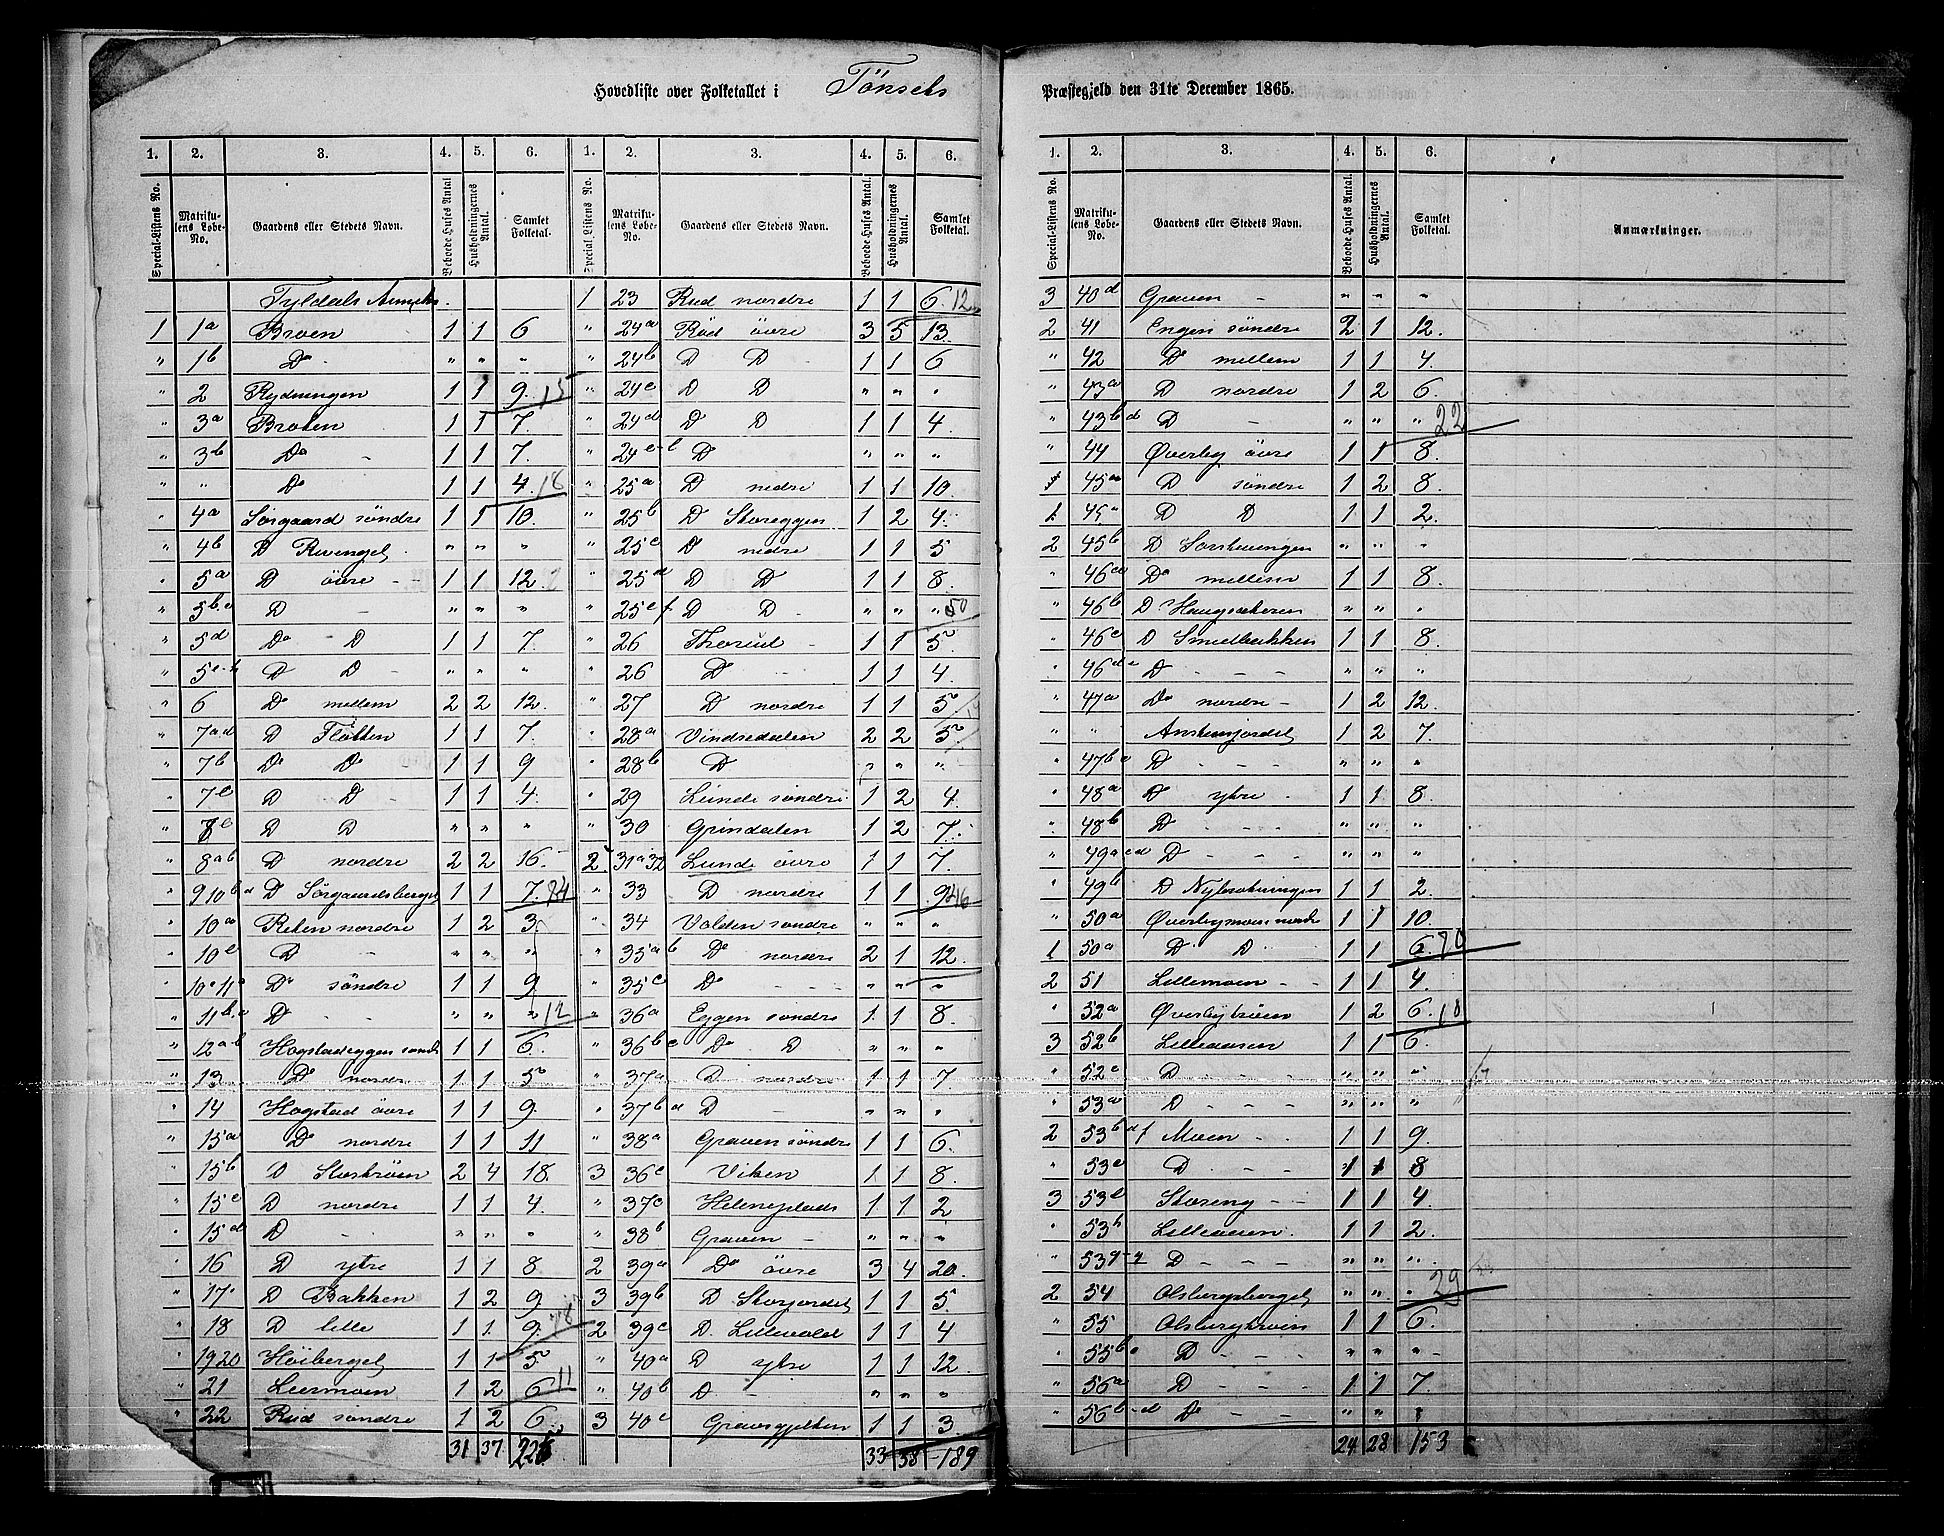 Hovedliste over Folketallet i Tönsets Præstegjeld den 31te December 1865.
1. 2. 3. 4. 5. 6. 1. 2. 3. 4. 5. 6.
Special-Listens No. Matrikulens Løbe-No. Gaardens eller Stedets Navn. Beboede Huses Antal. Husholdningernes Antal. Samlet Folketal. Special-Listens No. Matrikulens Løbe-No. Gaardens eller Stedets Navn. Beboede Huses Antal. Husholdningernes Antal. Samlet Folketal.
Tyldals Annex
1 1a Broen 1 1 6
" 1b Do " " "
" 2 Rydningen 1 1 9. 15
" 3a Broten 1 1 7.
" 3b Do - 1 1 7.
" " Do 1 1 4. 18
" 4a Sørgaard söndre 1 1 10.
" 4b D Revenget " " "
" 5a D övre - 1 1 12
" 5b.c D - " " "
" 5d Do D 1 1 7.
" 5e-h D D - " " "
" 6 Do mellem 2 2 12.
" 7ad D Flötten 1 1 7.
" 7b Do Do 1 1 9
" 7c D D - 1 1 4.
" 8c D D " " "
" 8ab D nordre 2 2 16.
" 9 10bd D Sörgaardsberget 1 1 7. 84
" 10a Reten nordre 1 2 3
" 10c D - " " "
" 10e11c Do söndre 1 1 9
" 11b.a D - - " " " 12
" 12ab Hogstadeggen söndr 1 1 6.
" 13 Do nordre 1 1 5
" 14 Hogstad övre 1 1 9.
" 15a Do nordre 1 1 11
" 15b D Storströen 2 4 18.
" 15c D nordre 1 1 4.
" 15d D - " " "
" 16 D ytre 1 1 8.
" 17. D Bakken 1 2 9
" 18 D lille 1 1. 9. 78
" 19 20 Höiberget 1 1 5
" 21 Leermoen 1 2 6 11
" 22 Rud söndre 1 2 6.
31 37 225
1 23 Rud nordre 1 1 6. 12
" 24a Röd övre 3 5 13.
" 24b D D - 1 1 6
" 24c D D " " "
" 24d D D 1 1 4.
" 24e-l D " " "
" 25a D nedre 1 1 10.
" 25b D Storeggen 1 2 4.
" 25c D nedre 1 1 5
" 25d D D 1 1 8.
" 25e f D D - " " " 50
" 26 Thorud - 1 1 5.
" 26 D - 1 1 4.
" 27 D nordre 1 1 5
" 28a Vindsedalen 2 2 5
" 28b D " " "
" 29 Lunde söndre 1 2 4.
" 30 Grindalen 1 2 7.
2. 31a 32 Lunde övre 1 1 7.
" 33 D nordre 1 1 9 46
" 34 Volden söndre " " "
" 35a b Do nordre 2 1 12.
" 35c Do - - - " " "
" 36a Eggen söndre 1 1 8.
" 36b c Do D " " "
" 37a D nordre 1 1 7
" 37b d D - " " "
" 38a Graven söndre 1 1 6.
3 36c Viken 1 1 8.
" 37c Heleneplads 1 1 2
" 38b Graven - " " "
2 39a Do övre 3 4 20.
3 39b D Storjordet 1 1 5.
2 39c D. Lillevold 1 1 4
" 40a D ytre 1 1 12.
" 40b D - " " "
3 40c Gravsgjelten 1 1 3
33 38 189
1. 2. 3. 4. 5. 6.
Special-Listens No. Matrikulens Løbe-No. Gaardens eller Stedets Navn. Beboede Huses Antal. Husholdningernes Antal. Samlet Folketal. Anmærkninger.
3 40d Graven - " " "
2 41 Engen söndre 2 1 12.
" 42 Do mellem 1 1 4.
" 43a D nordre 1 2 6.
" 43b d D - " " " 22
" 44 Øverby övre 1 1 8.
45a D söndre 1 2 8.
1. 45" D D 1 1 2.
2 45b D " " "
" 46a Do mellem 1 1 8.
" 46b D Haugsæteren " " "
" 46c D Smedbakken 1 1 8.
" 46d e D - - - " " "
" 47a Do nordre - 1 2 12.
" " 1 2 7.
" 47b c D - - - - " " "
" 48a D ytre - 1 1 8.
" 48b D - - - " " "
" 49a c d D - - - " " "
" 49b D 1 1 2.
" 50a Øverbymoen nordr 1 1 10.
1 50a D D - 1 1 6. 70
2 51 Lillemoen - - 1 1 4.
" 52a Øverbytröen 1 2 6. 18
3 52b Lilleaasen 1 1 6.
" 52c D - - - " " "
" 53a D - - - " " "
2 53b d f Moen - - 1 1 9.
" 53c D - - - 1 1 8
3 53e Storeng - - 1 1 4.
" 53h Lilleaasen. - 1 1 2.
" 53g-q D - - - " " "
2 54 Olsbergsberget " " " 29
" 55 1 1 6.
" 55b c D - - - " " "
" 56a D - - - 1 1 7.
" 56b-d Do - - " " "
24 28 153